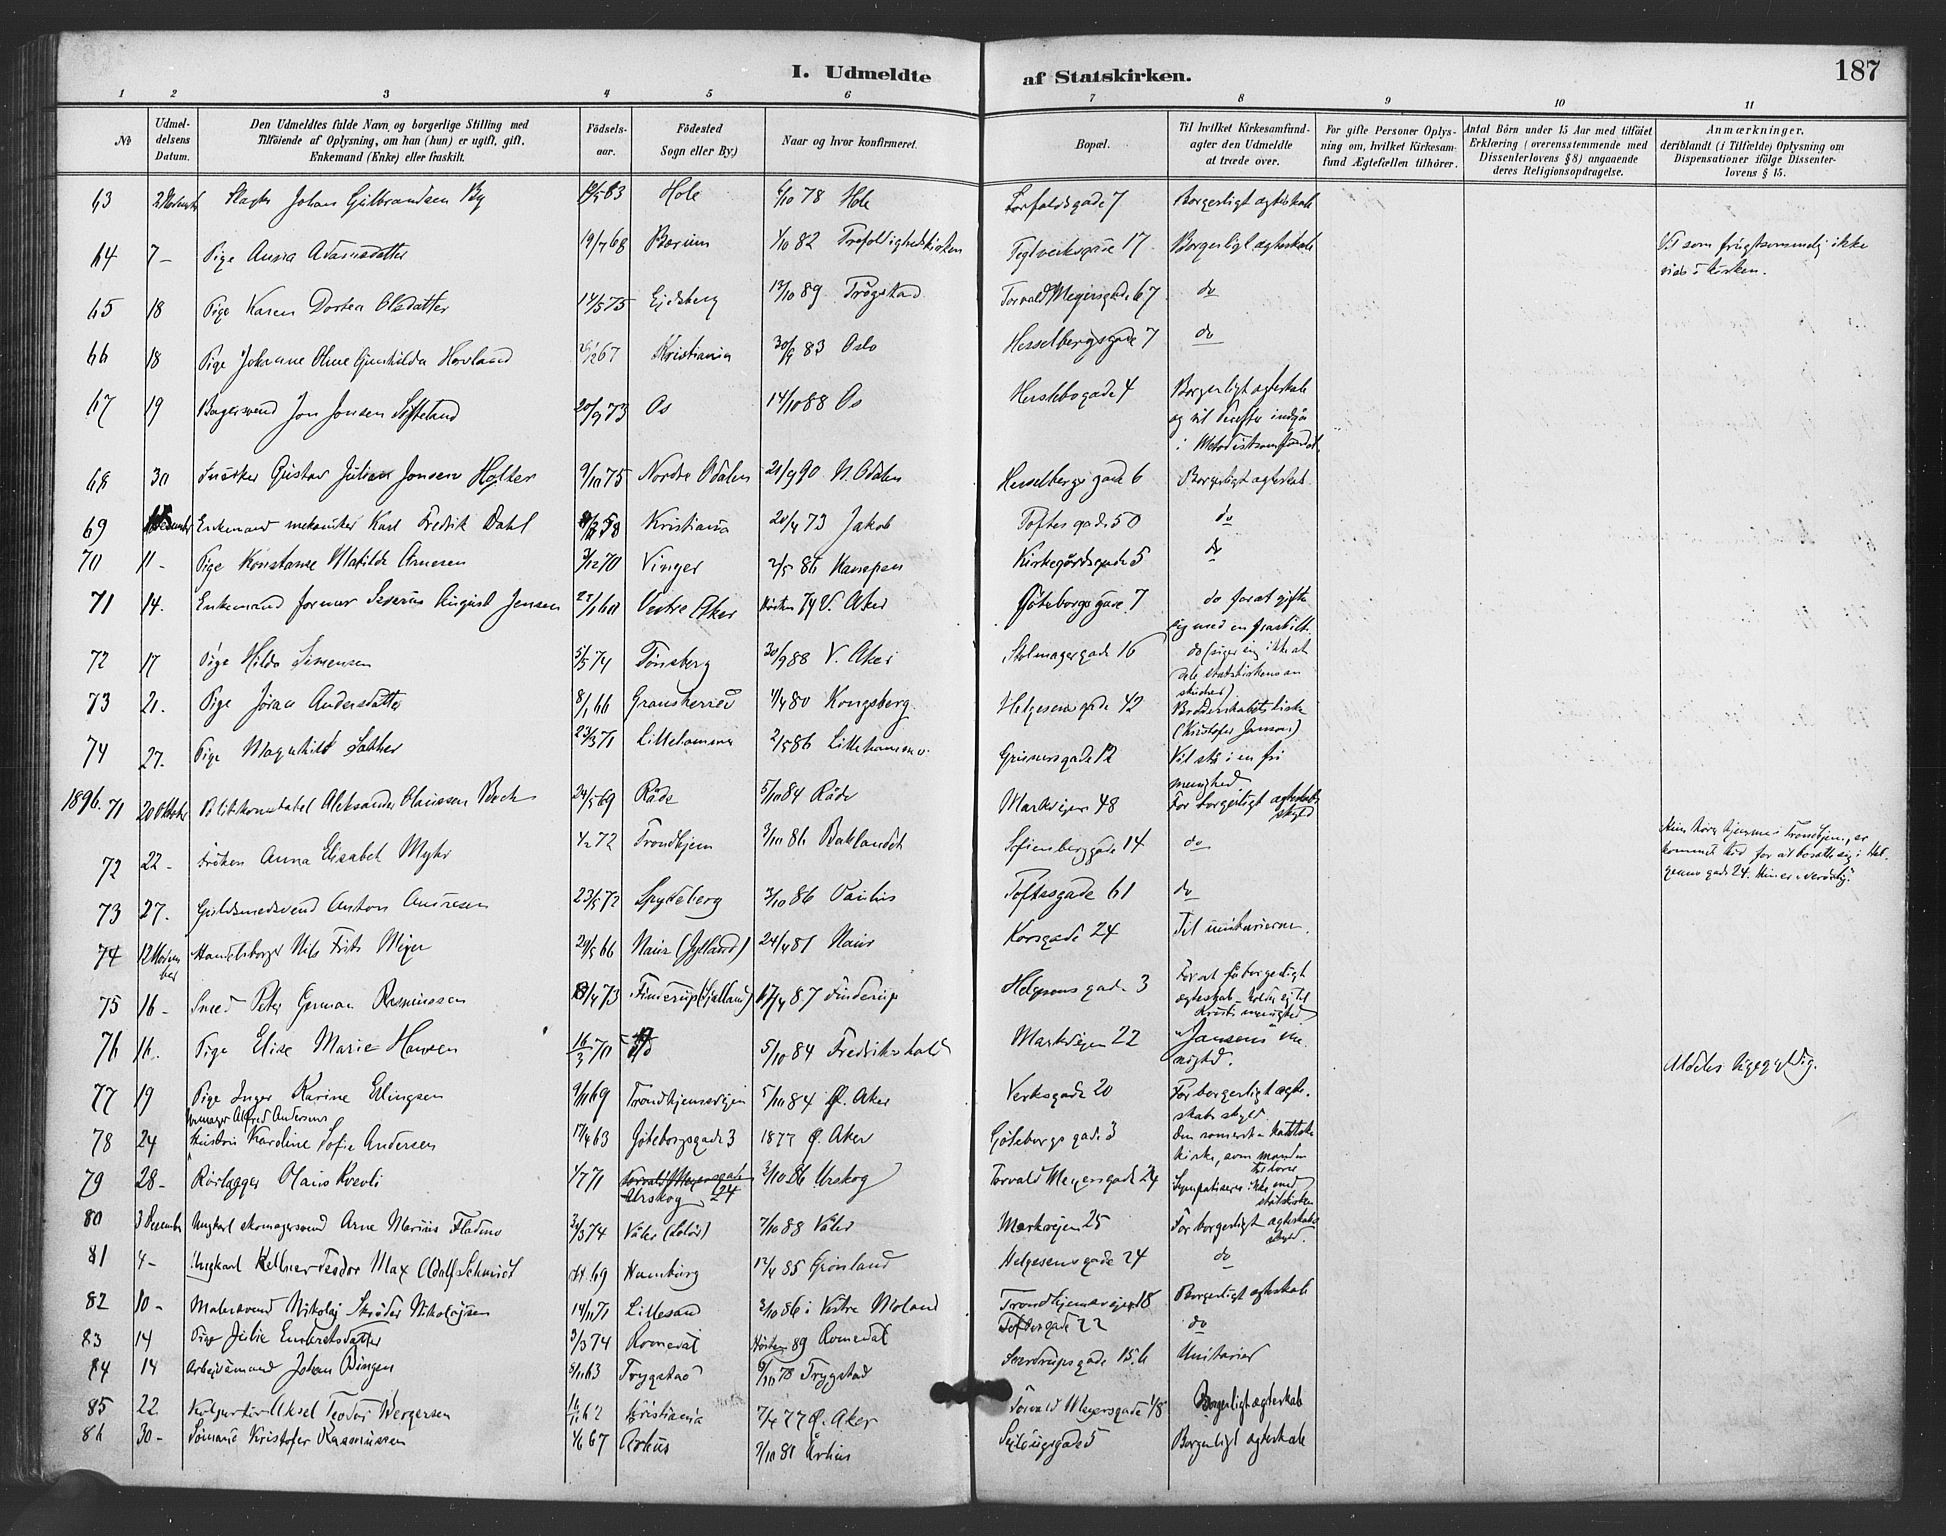 I. Udmeldte af Statskirken. 187
1 2 3 4 5 6 7 8 9 10 11
No
Udmel-
delsens
Datum.
Den Udmeldtes fulde Navn og borgerlige Stilling med
Tilföiende af Oplysning, om han (hun) er ugift, gift,
Enkemand (Enke) eller fraskilt.
Födsels-
aar.
Födested
Sogn eller By.)
Naar og hvor konfirmeret.
Bopæl.
Til hvilket Kirkesamfund-
agter den Udmeldte
at træde over.
For gifte Personer Oplys-
ning om, hvilket Kirkesam-
fund Ægtefællen tilhörer.
Antal Börn under 15 Aar med tilföiet
Erklæring (overensstemmende med
Dissenterlovens § 8) angaaende
deres Religionsopdragelse.
Anmærkninger,
deriblandt (i Tilfælde) Oplysning om
Dispensationer ifölge Dissenter-
lovens § 15.
63 Johan Gulbrandsen By Hole 6/10 78 Hole 7 Borgerligt ægteskab
64 7 – Pige Anna Adamsdatter 19/7 68 Bærum 1/10 82 Trefoldighedskirken Teglverksgade 17 Borgerligt ægteskab
ikke
i kirken.
65 18 Pige Karen Dortea Olsdatter 14/5 75 Eidsberg 13/10 89 Trøgstad Torvald Meyersgade 67 do
66 18 Pige Johanne Oline Gunhilda Hovland Kristiania 30/9 83 Oslo Hesselbergsgade 7 do
67 19 Bagersvend Jon Jonsen 20/9 73 Os 14/10 88 Os Herslebsgade 4 Borgerligt ægteskab
og vil indgå
i Metodistsamfundet.
68 30 Snedker Gustav Julian Jonsen Holter 9/10 75 Nordre Odalen 21/9 90 N. Odalen Hesselbergs gade 6 Borgerligt ægteskab
69 Enkemand mekaniker Karl Fredrik Dahl Kristiania 20/4 73 Jakob Toftes gade 50 do
70 11 – Pige Konstanse Matilde Arnesen 3/12 70 Vinger 2/5 86 Kampen Kirkegårdsgade 5 do
71 14. Enkemand former Severin August Jensen Vestre Aker Høsten 74 V. Aker Göteborgs gade 7 do for at gifte
sig med en fraskilt.
72 17 Pige Hilda Simensen 5/5 74 Tønsberg 30/9 88 V. Aker 16 do
statskirkens
73 21. Pige Jøran Andersdatter 8/1 66 Gransherred 4/4 80 Kongsberg Helgesens gade 42 Broderskabets kirke
(Kristofer Janson)
74 27. Pige Magnhild Sather 23/3 71 Lillehammer 2/5 86 Lillehammer Grünersgade 12 Vil stå i en fri
menighed
1896. 71 20 Oktober Politikonstabel Aleksander Olaussen Bech 24/5 69 Råde 5/10 84 Råde Markvejen 48 For borgerligt ægteskabs
skyld
72 22 – Frøken Anna Elisabet Myhr 1/2 72 Trondhjem 3/10 86 Baklandet Sofienberggade 14 do
hjemme i Trondhjem, er
kommet hid for at bosætte sig i Hel-
gesens gade 24.
73 27. Guldsmedsvend Anton Andresen 23/5 72 Spydeberg 3/10 86 Paulus Toftesgade 61 do
74 12 Novem
ber Handelsborger Nils Frits Mejer 29/5 66 Naur (Jylland) 24/4 81 Naur Korsgade 24 Til unitarierne.
75 16 – Smed Peter German Rasmussen Finderup (Sjælland) 17/4 87 Finderup Helgesens gade 3 For at få borgerligt
ægteskab
76 16. Pige Elise Marie Hansen 16/3 70 5/10 84 Fredrikshald Markvejen 22 "Jansons" me
nighed. Aldeles Ugegyldig.
77 19 Pige Inger Karine Elingsen 9/11 69 Trondhjemsvejen 5/10 84 Ø. Aker Verksgade 20 For borgerligt ægte-
skabs skyld
Alfred Andersens
78 24 Hustru Karoline Sofie Andersen 17/4 63 Göteborgsgade 3 1877 Ø. Aker Göteborgs gade 3 Den romersk katolske
kirke, som manden
tilhører
79 28 – Rørlægger Olaus Kvevli 1/7 71 Torvald Meyersgade 24 Urskog 3/10 86 Urskog Torvald Meyersgade 24 Sympatiserer ikke med
statskirken
80 3 Desember Ungkarl skomagersvend Arne Marius Fladmo 30/3 74 Våler (Solør) 7/10 88 Våler Markvejen 25 For borgerligt ægteskabs
skyld.
81 4 – Ungkarl Kellner Teodor Max Adolf Schmidt Hamburg 12/4 85 Grønland Helgesens gade 24 do
82 10 – Malersvend Nikolaj Skrøder Nikolajsen 14/11 71 Lillesand 3/10 86 i Vestre Moland Trondhjemsvejen 18 Borgerligt ægteskab
83 14 Pige Julie Embretsdatter 3/3 74 Romedal Høsten 89 Romedal Toftesgade 22 do
84 14 Arbejdsmand Johan Bingen 5/11 63 Trygstad 6/10 78 Trygstad Sverdrupsgade 15.b Unitarier
85 22. Kolportør Aksel Teodor Wergersen 11/11 62 Kristiania 7/4 77 Ø. Aker Torvald Meyersgade 18 Borgerligt ægteskab
86 30 – Sømand Kristofer Rasmussen 1/6 67 Århus 9/10 81 Århus Seilduksgade 5 Borgerligt ægteskab